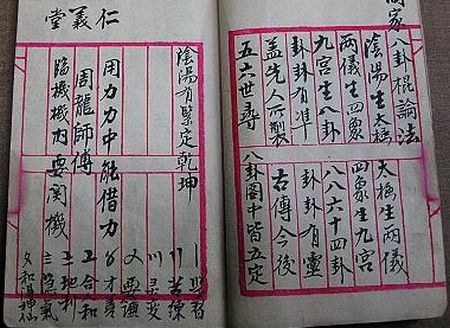 家八卦棍論法
陰陽生太極 太極生兩儀
兩儀生四象 四象生九宮
九宮生八卦 八八六十四卦
卦卦有準 卦卦有靈
蓋先人所製 古傳今後
五六世尋 八卦閣中皆五定
仁義堂
陰陽有緊定乾坤
用力力中能借力
周龍師傅
臨機機內要關機
〢 苦練
〧 地利